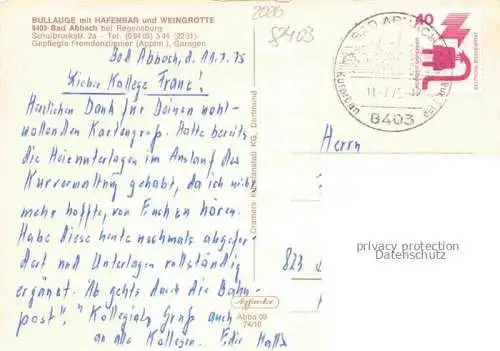 BULLAUGE mit HAFENBAR und WEINGROTTE
8403 Bad Abbach bei Regensburg
Schulbruckstr. 2a - Tel. (09405) 544 (2251)
Gepflegte Fremdenzimmer (Apptm.), Garagen
2006
8403
Bad Abbach, d. 11.7.75
Lieber Kollege Franz!
Herzlichen Dank für Deinen wohl-
wollenden Kartengruß. Hatte bereits
die Unterlagen im Anslauf des
Kurverwaltung gehabt, da ich nicht
mehr hoffte, von Euch zu hören.
Habe diese heute nochmals abgefor-
dert und Unterlagen vollständig
ergänzt. Ab gehts durch die Bahn-
post". Kollegialen Gruß auch
an alle Kollegen.
Cramers Kunstanstalt KG, Dortmund
Abba 09
74/10
40
DEUTSCHE BUNDESPOST
BAD ABBACH
8403
Herrn
823
privacy protection
Datenschutz